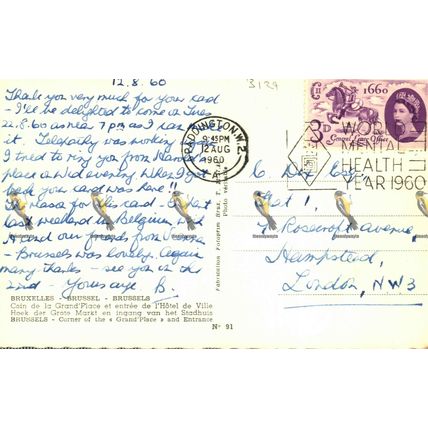 12.8.60
3129
Thank you very much for your card
- I'll be delighted to come on Tues
22.8.60 as near 7 pm as I can make
it. Telepathy was working
I tried to ring you from
place on Wed evening. When I got
back your card was here!!
The reason for this card - I spent
last weekend in Belgium with
and our friends from
- Brussels was lovely. Again
many thanks - see you on the
22nd - Yours aye B.
BRUXELLES - BRUSSEL - BRUSSELS
Coin de la Grand'Place et entrée de l'Hôtel de Ville
Hoek der Grote Markt en ingang van het Stadhuis
BRUSSELS - Corner of the « Grand'Place » and Entrance
N° 91
Fabrication Photoprim Brux.
Photo véritable
PADDINGTON.W.2
9:45PM
12 AUG
1960
A
1660
3D
General Letter Office
WORLD
MENTAL
HEALTH
YEAR 1960
Flat 1,
7 Rosecroft Avenue,
Hampstead,
London, NW3